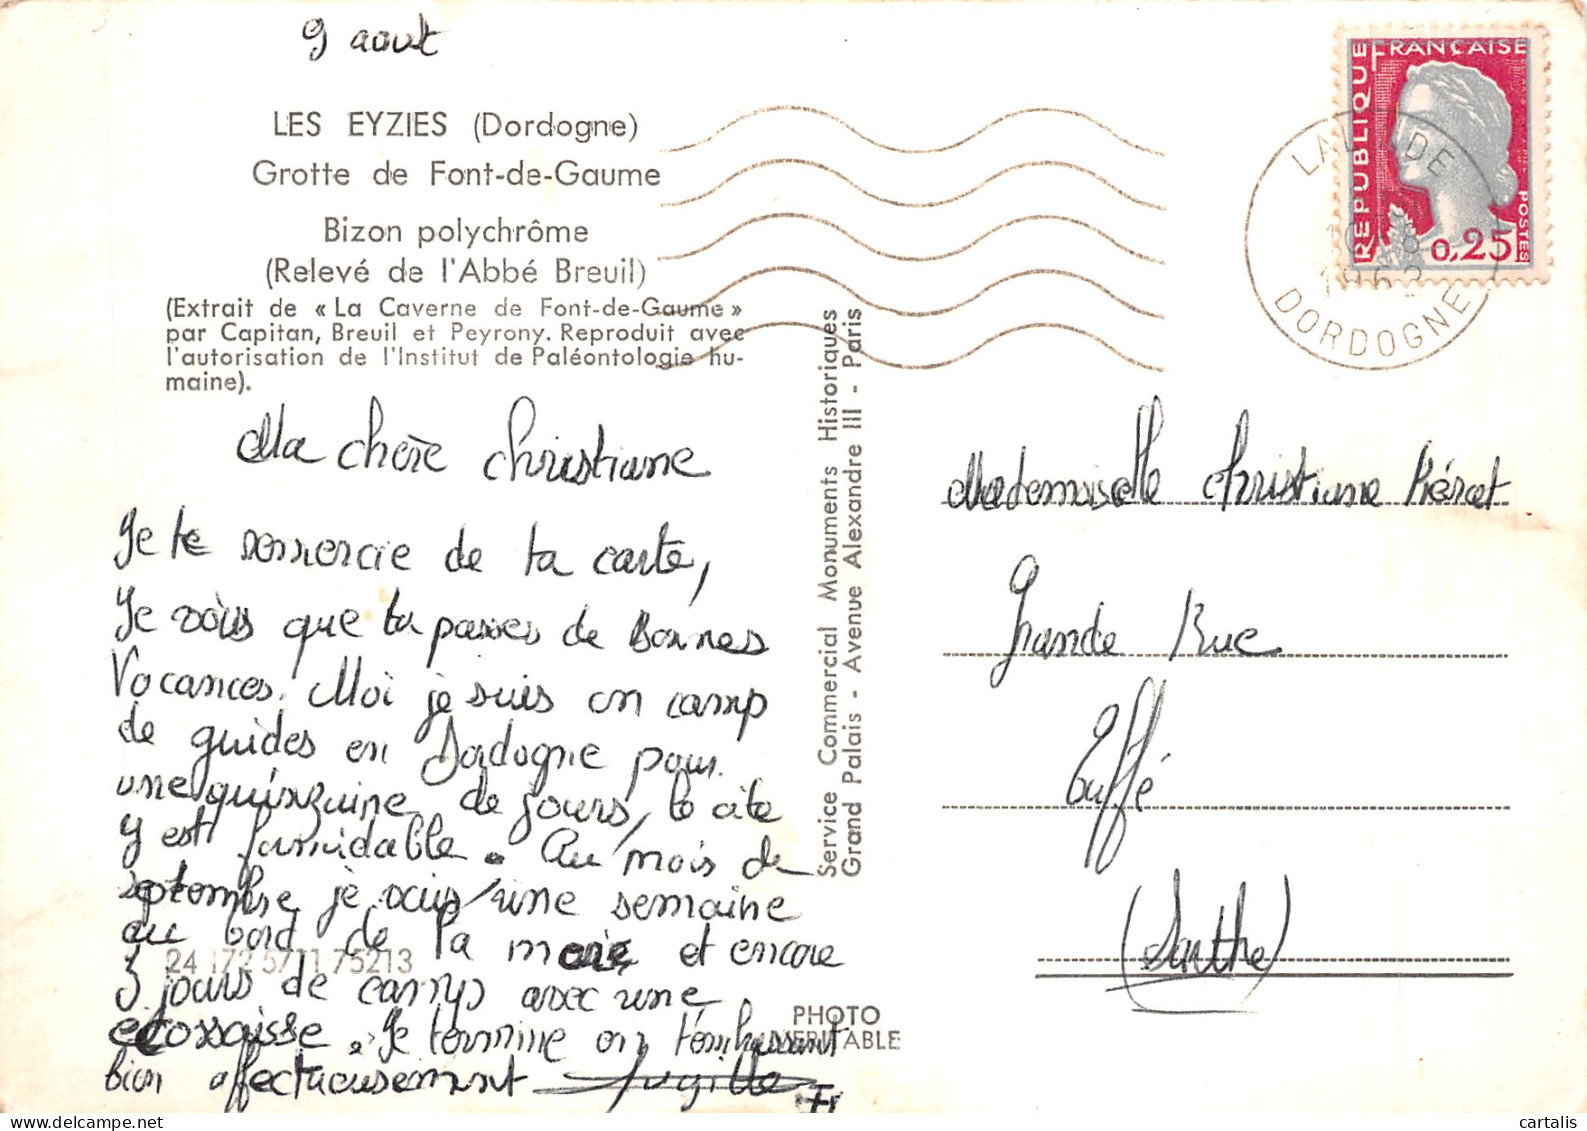 9 aout
LES EYZIES (Dordogne)
Grotte de Font-de-Gaume
Bizon polychrôme
(Relevé de l'Abbé Breuil)
(Extrait de « La Caverne de Font-de-Gaume »
par Capitan, Breuil et Peyrony. Reproduit avec
l'autorisation de l'Institut de Paléontologie hu-
maine).
Ma chère Christiane
Je te remercie de ta carte,
Je vois que tu passes de Bonnes
Vacances. Moi je suis en camp
de guides en Dordogne pour
une quinzaine de jours, le site
y est formidable. Au mois de
septembre je vais une semaine
au bord de la mer et encore
3 jours de camp avec une
écossaisse. Je termine en t'embrassant
bien affectueusement
24 172 5711 75213
PHOTO
VERITABLE
Service Commercial Monuments Historiques
Grand Palais - Avenue Alexandre III - Paris
REPUBLIQUE FRANÇAISE
POSTES
0,25
LALINDE
DORDOGNE
Mademoiselle Christiane
Grande Rue
Tuffé
(Sarthe)
cartalis